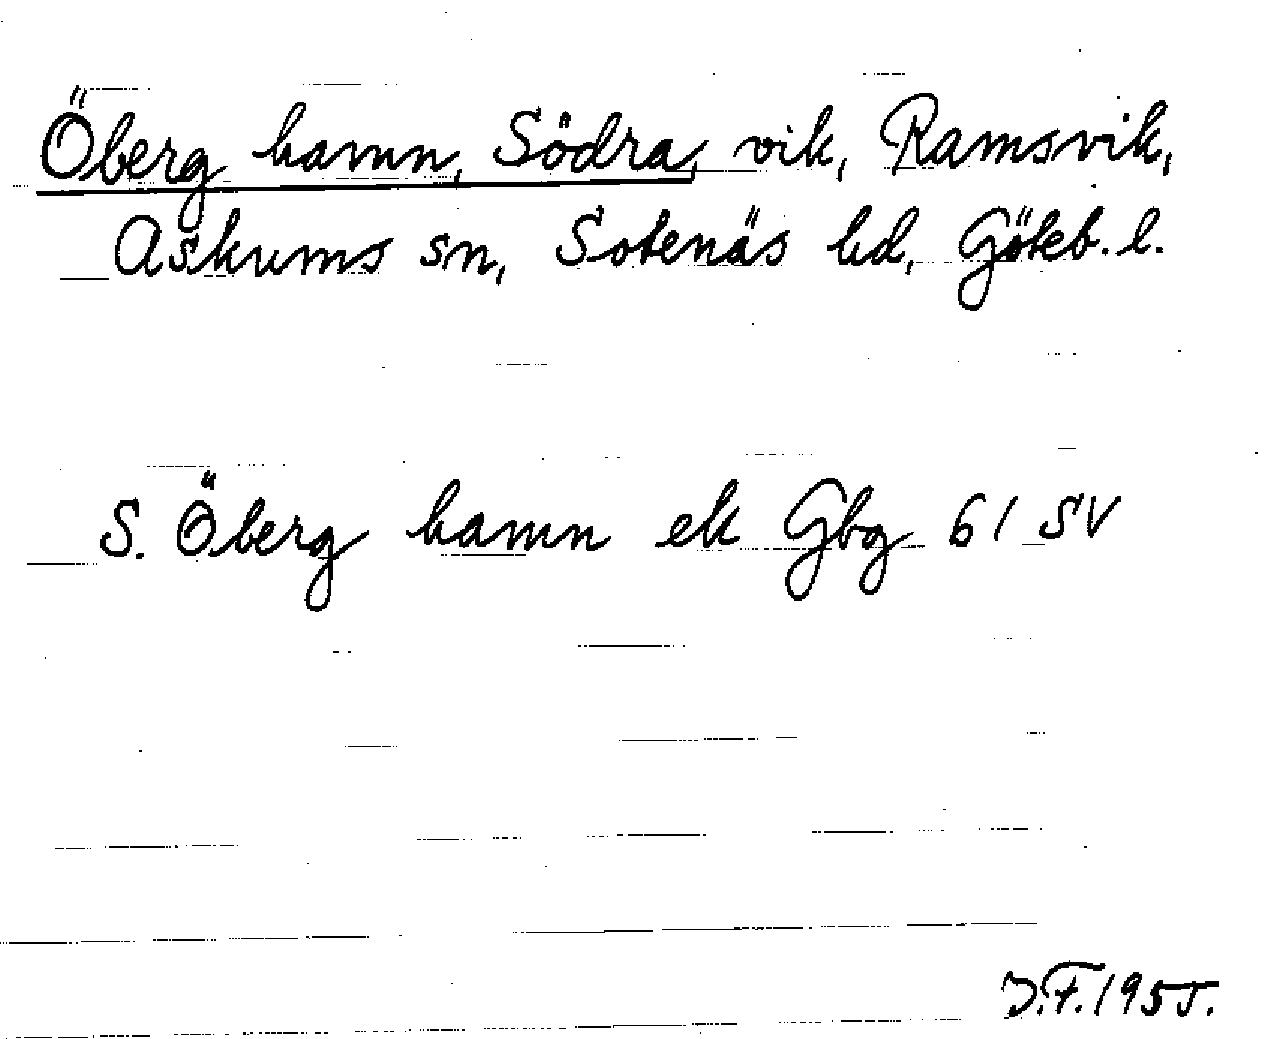 Öberg hamn, Södra, vik, Ramsvik,
Askums sn, Sotenäs hd, Göteb. l.
S. Öberg hamn ek Gbg 61 SV
J.F. 1955.